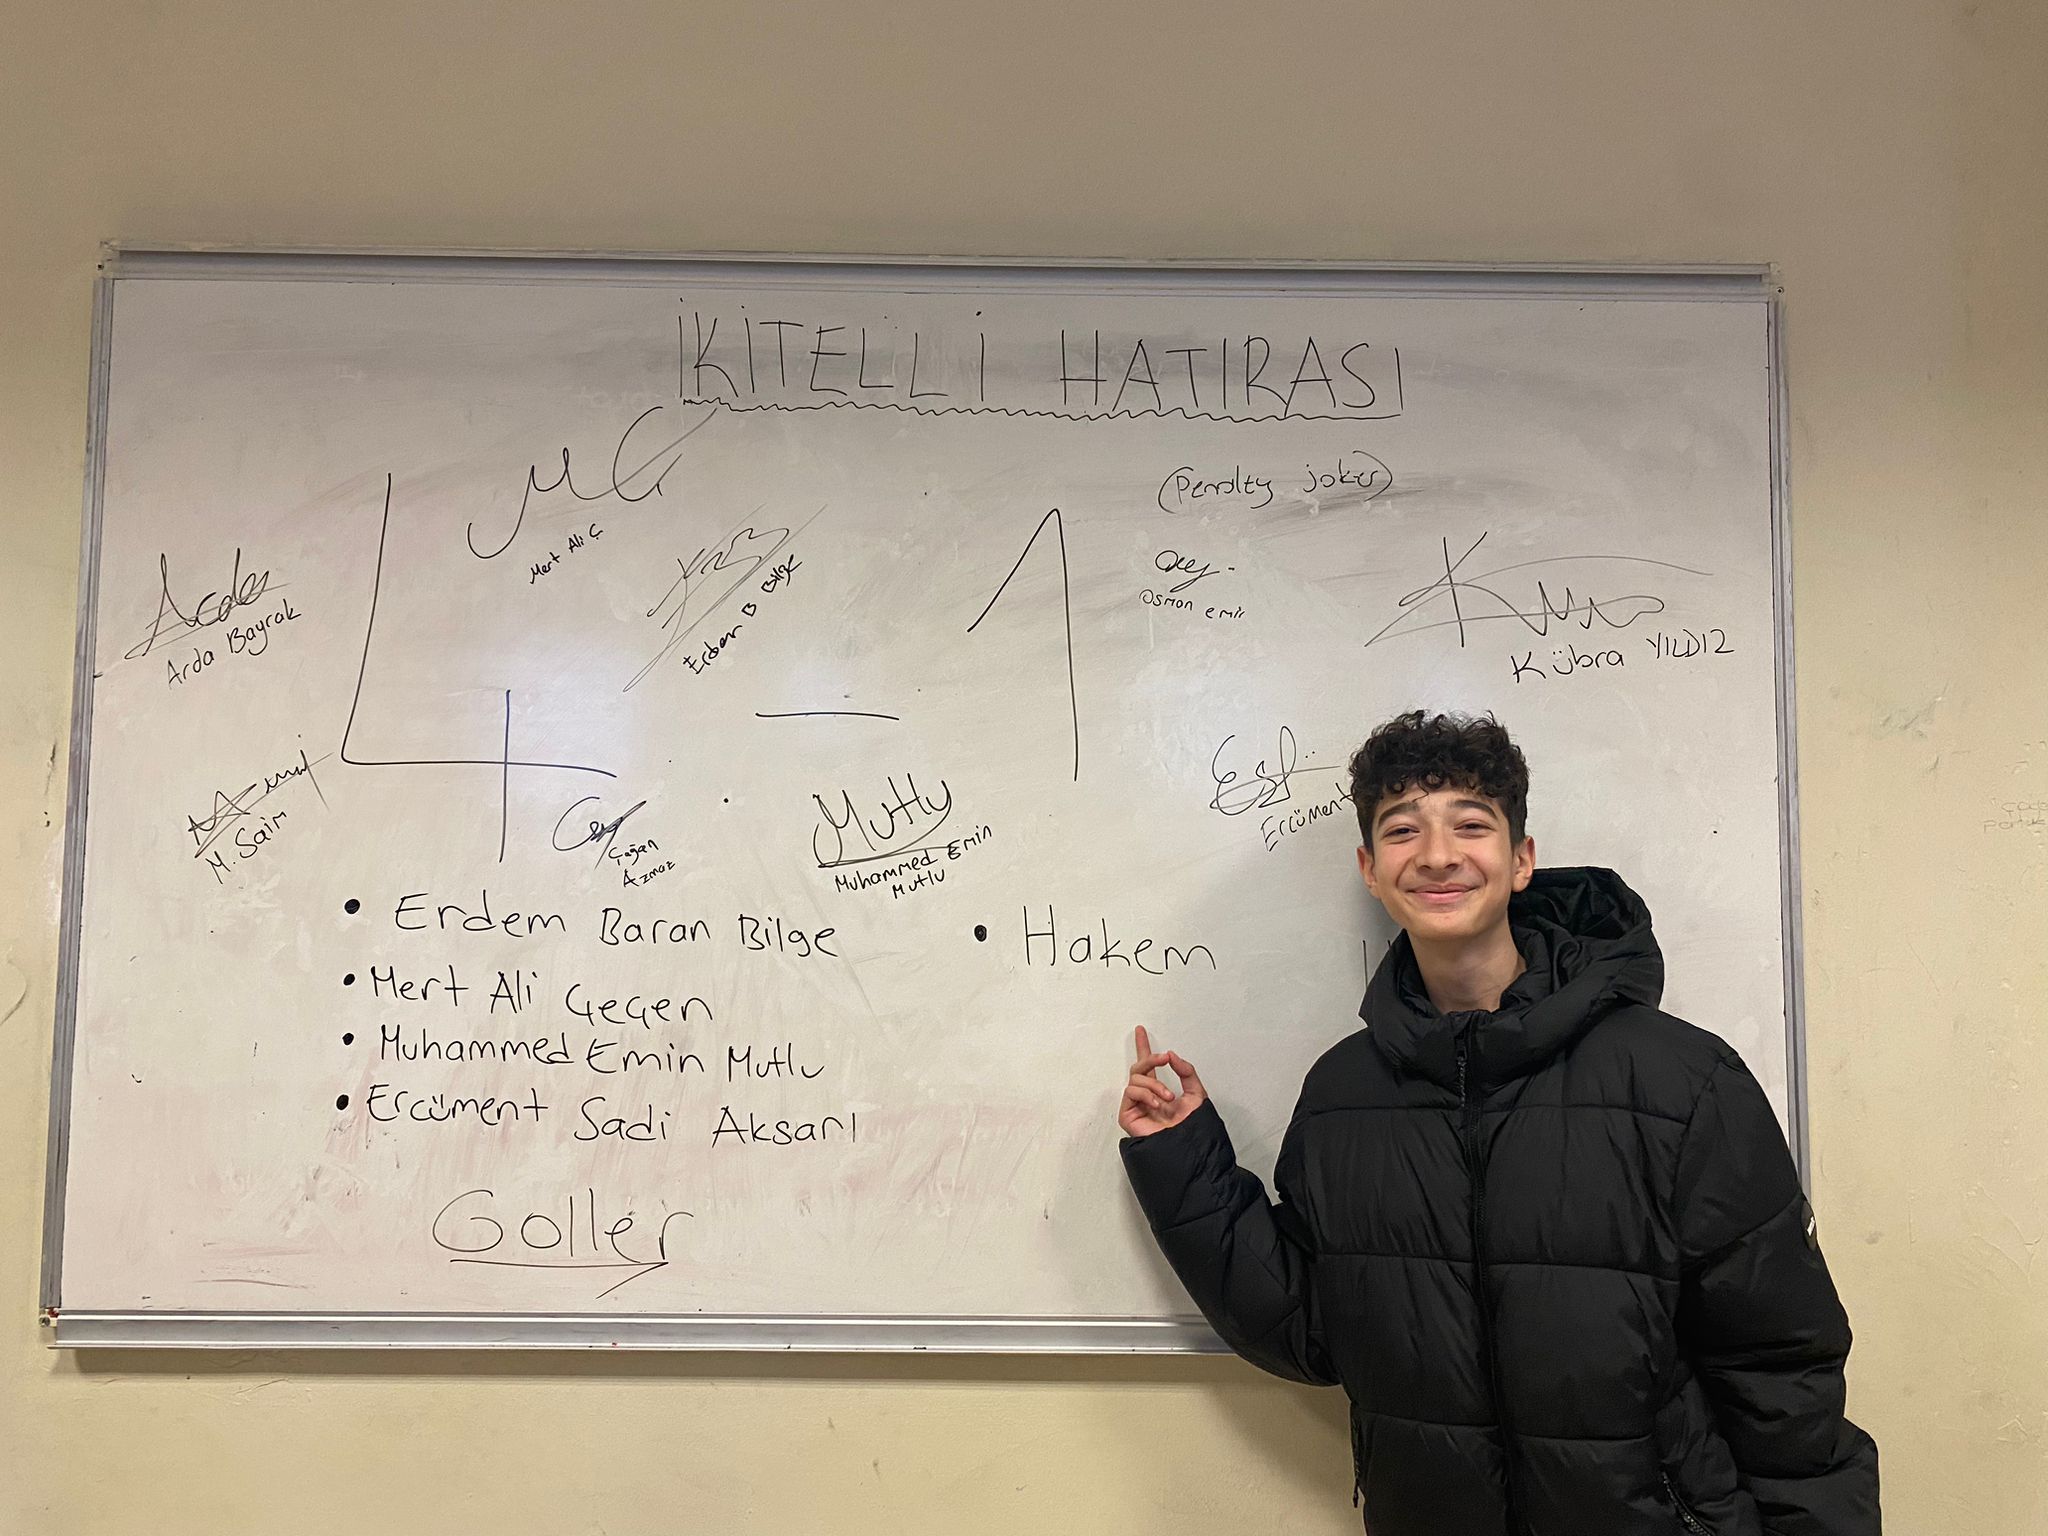 İKİTELLİ HATIRASI
MG
Mert Ali Ç
(Penalty joker)
Arda
Arda Bayrak
Erdem B Bilge
Osman emir
Kübra YILDIZ
4 - 1
M. Saim
Çağan
Azmaz
Mutlu
Muhammed Emin
Mutlu
Ercüment
• Erdem Baran Bilge
• Hakem
• Mert Ali Geçen
• Muhammed Emin Mutlu
• Ercüment Sadi Aksarı
Goller